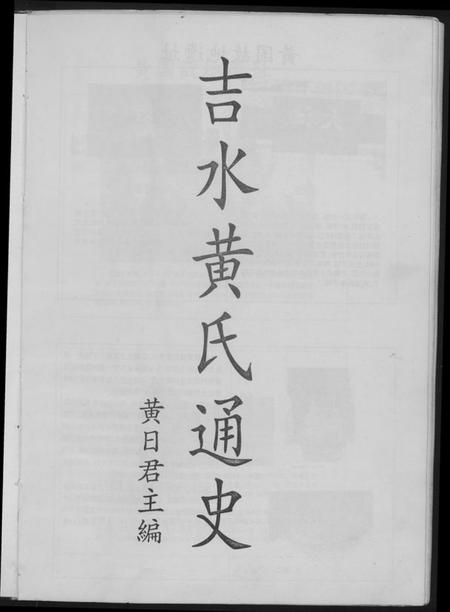 吉水黄氏通史
黄日君主編